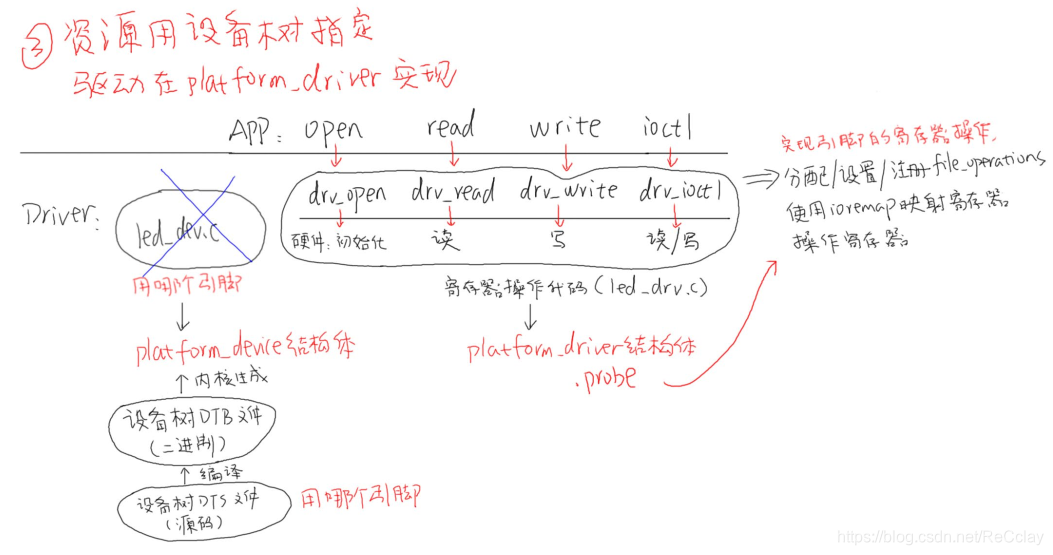 ③ 资源用设备树指定
驱动在platform_driver实现
APP: open read write ioctl
实现引脚的寄存器操作,
Driver:
led_dev.c
drv_open drv_read drv_write drv_ioctl
硬件:初始化 读 写 读/写
⇒分配/设置/注册file_operations
使用ioremap映射寄存器
操作寄存器
用哪个引脚
寄存器操作代码(led_drv.c)
platform_device结构体
platform_driver结构体
.probe
↑内核生成
设备树DTB文件
(二进制)
↑编译
设备树DTS文件
(源码)
用哪个引脚
https://blog.csdn.net/ReCclay